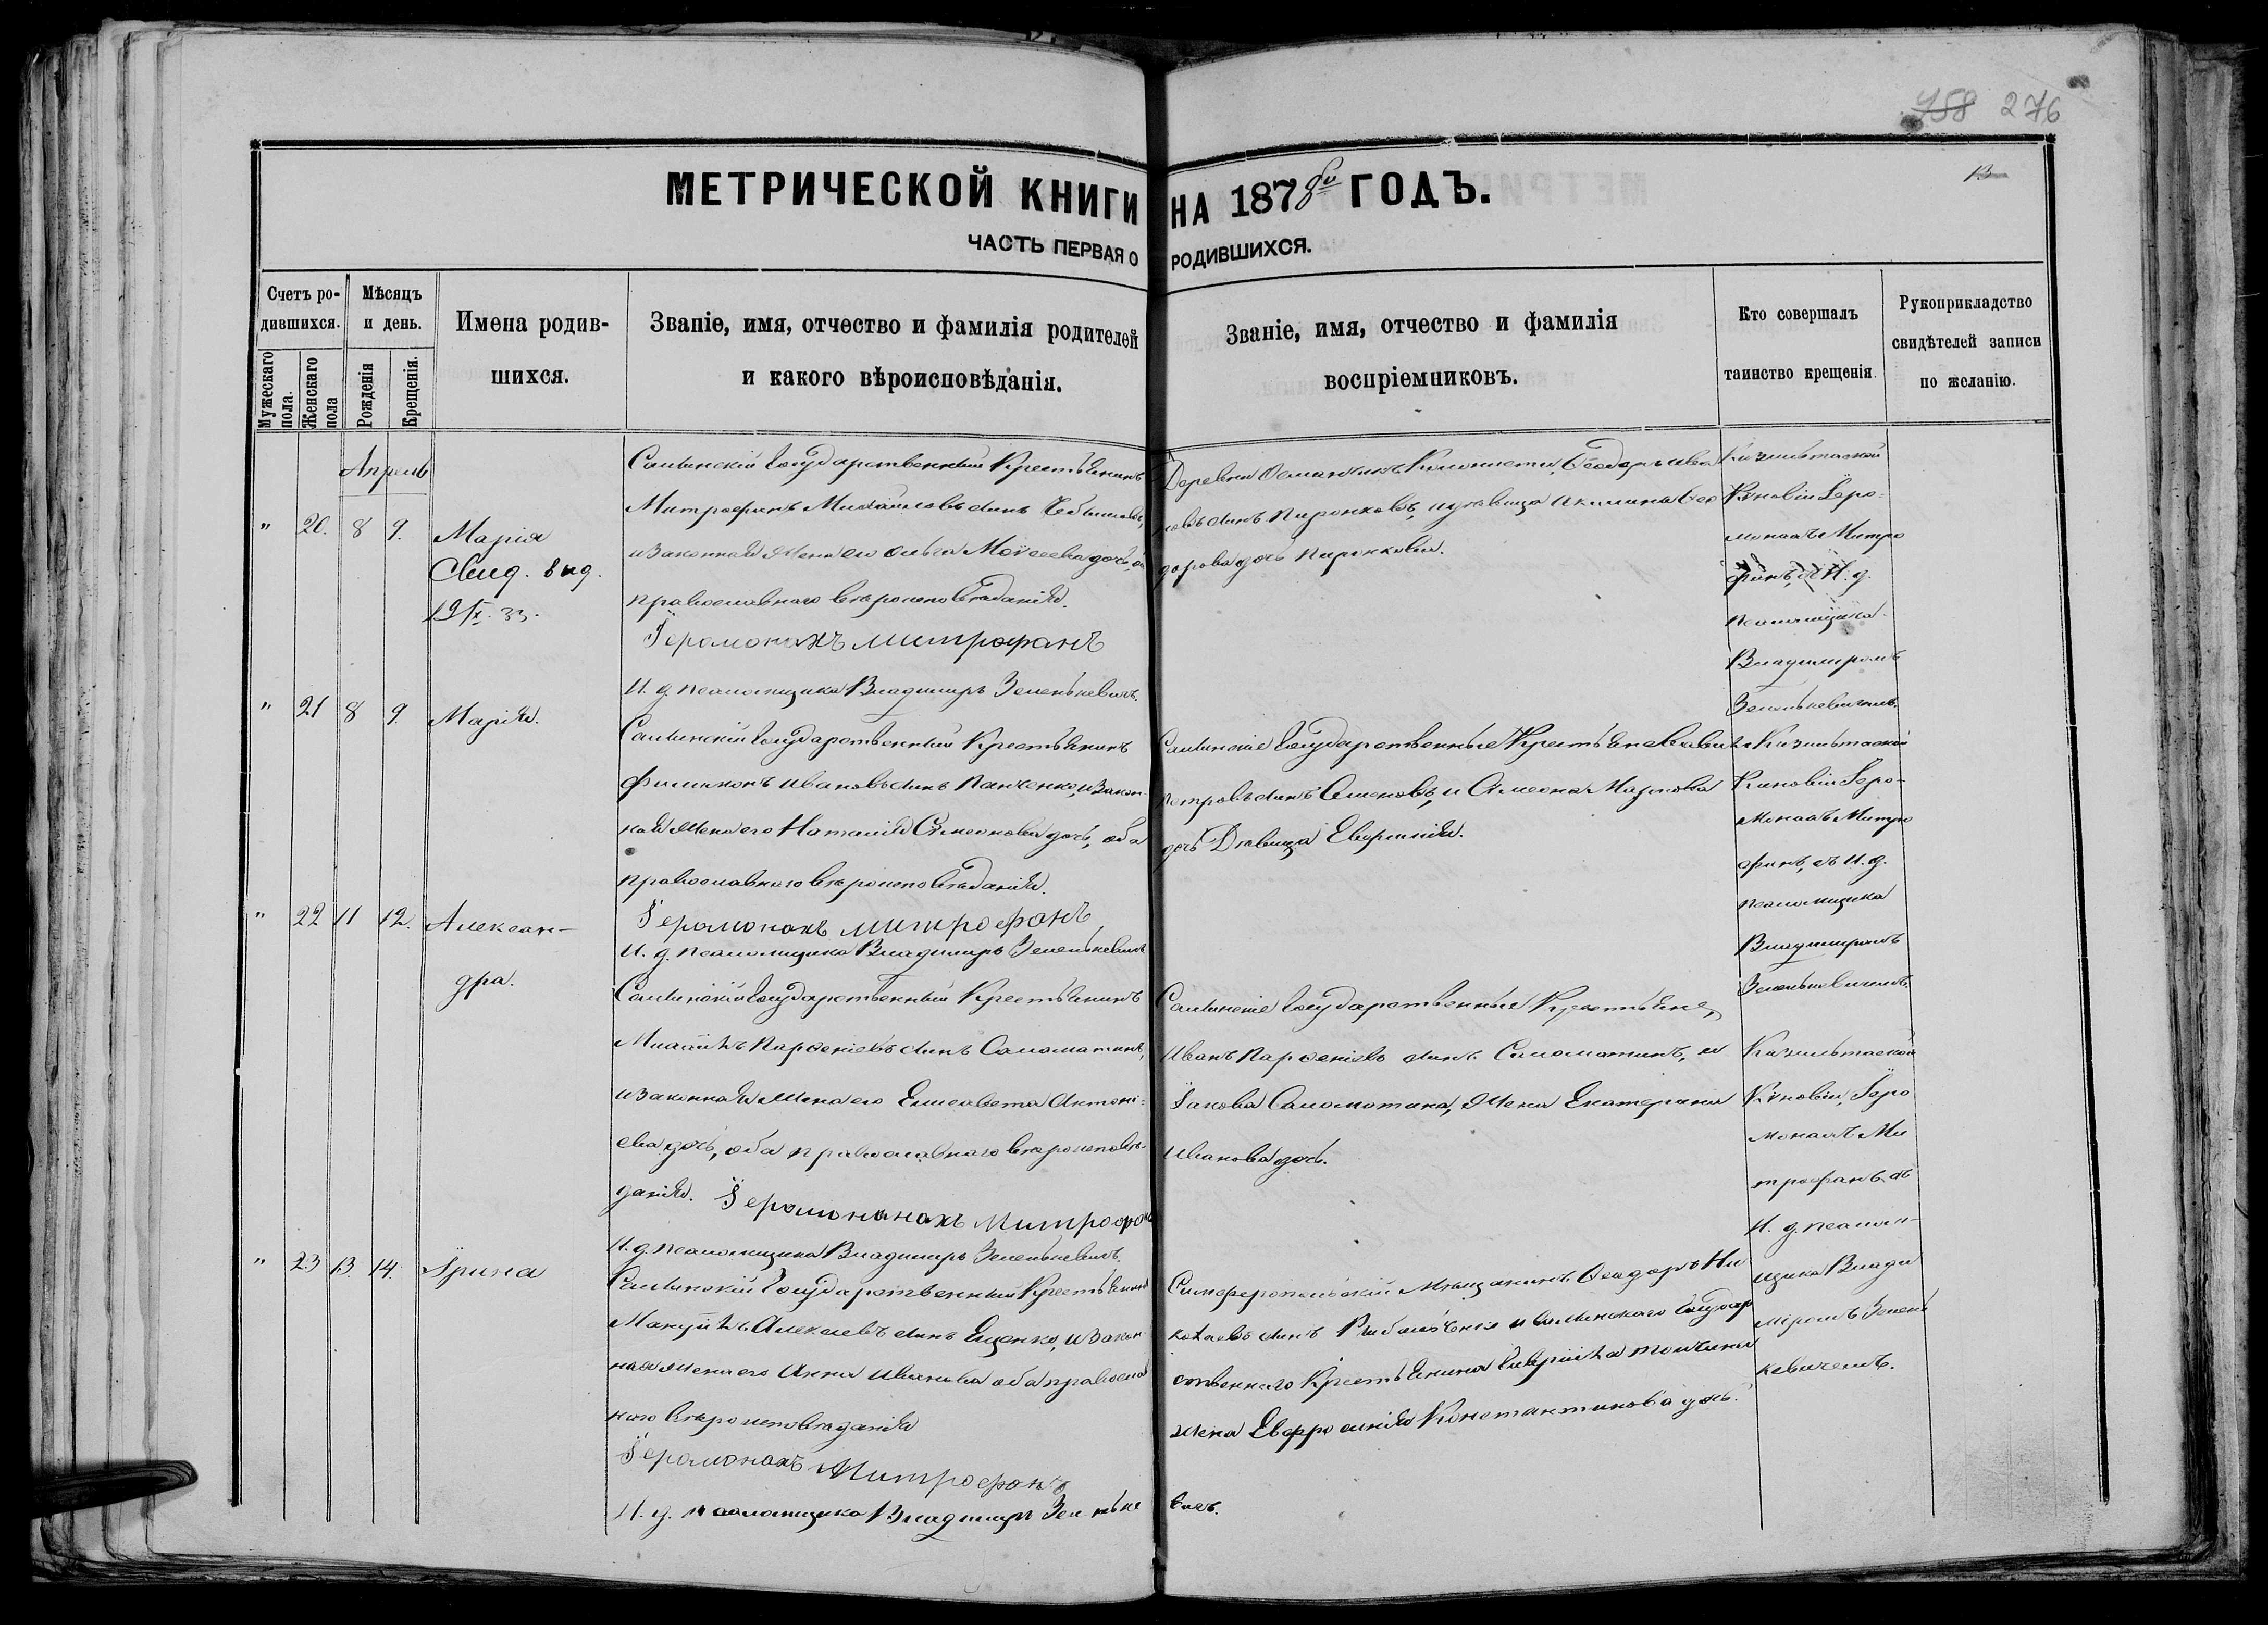 758 276
13
МЕТРИЧЕСКОЙ КНИГИ НА 1878й ГОДЪ.
ЧАСТЬ ПЕРВАЯ О РОДИВШИХСЯ.
Счетъ ро-
дившихся.
Мужескаго пола.
Женскаго пола
Мѣсяцъ
и день.
Рожденія
Крещенія.
Имена родив-
шихся.
Званіе, имя, отчество и фамилія родителей
и какого вѣроисповѣданія.
Званіе, имя, отчество и фамилія
воспріемниковъ.
Кто совершалъ
таинство крещенія.
Рукоприкладство
свидѣтелей записи
по желанію.
Апрель
" 20. 8 9.
Марія
Свид. выд.
Салынскій Государственный Крестьянинъ
Митрофанъ Михайловъ сынъ
и законная жена его Ольга Моѵсеева дочь,
православнаго вѣроисповѣданія.
Іеромонахъ Митрофанъ
И. д. псаломщика Владиміръ Зеленькевичъ.
Деревни Османчикъ Колонистъ, Ѳеодоръ Ива
новъ сынъ Пиронковъ, и дѣвица Акилина Ѳео
дорова дочь Пиронкова.
Кизильташской
Киновіи Іеро-
монахъ Митро
фанъ, съ И. д.
псаломщика
Владиміромъ
Зеленькевичемъ.
" 21 8 9.
Марія.
Салынскій Государственный Крестьянинъ
Филимонъ Ивановъ сынъ Панченко, и закон-
ная жена его Наталія Симеонова дочь, оба
православнаго вѣроисповѣданія.
Іеромонахъ Митрофанъ
И. д. псаломщика Владиміръ Зеленькевичъ
Салынскіе Государственные Крестьяне Савва
Петровъ сынъ Семеновъ, и Симеона Маркова
дочь Дѣвица Евфимія.
Кизильташской
Киновіи Іеро-
монахъ Митро
фанъ, съ И. д.
псаломщика
Владиміромъ
Зеленькевичемъ.
" 22 11 12.
Алексан-
дра.
Салынскій Государственный Крестьянинъ
Михаилъ Парѳеніевъ сынъ Саломатинъ,
и законная жена его Елисавета Антоні-
ева дочь, оба православнаго вѣроисповѣ-
данія. Іеромонанахъ Митрофанъ
И. д. псаломщика Владиміръ Зеленькевичъ.
Салынскіе Государственные Крестьяне,
Иванъ Парѳеніевъ сынъ Саломатинъ, и
Іакова Саломатина, жена Екатерина
Иванова дочь.
Кизильташской
Киновіи, Іеро
монахъ Ми
трофанъ съ
И. д. псалом-
щика Влади
міромъ Зелень
кевичемъ.
" 23 13. 14.
Ирина
Салынскій Государственный Крестьянинъ
Мануилъ Алексеевъ сынъ Ещенко, и закон
ная жена его Анна Иванова оба правосла
наго вѣроисповѣданія
Іеромонахъ Митрофанъ
И. д. псаломщика Владиміръ Зеленьке вичъ.
Симферопольскій Мѣщанинъ Ѳеодоръ Ни
колаевъ сынъ Рыбальченко и Салынскаго Государ
ственнаго Крестьянина Гавріила
жена Евфросинія Константинова дочь.